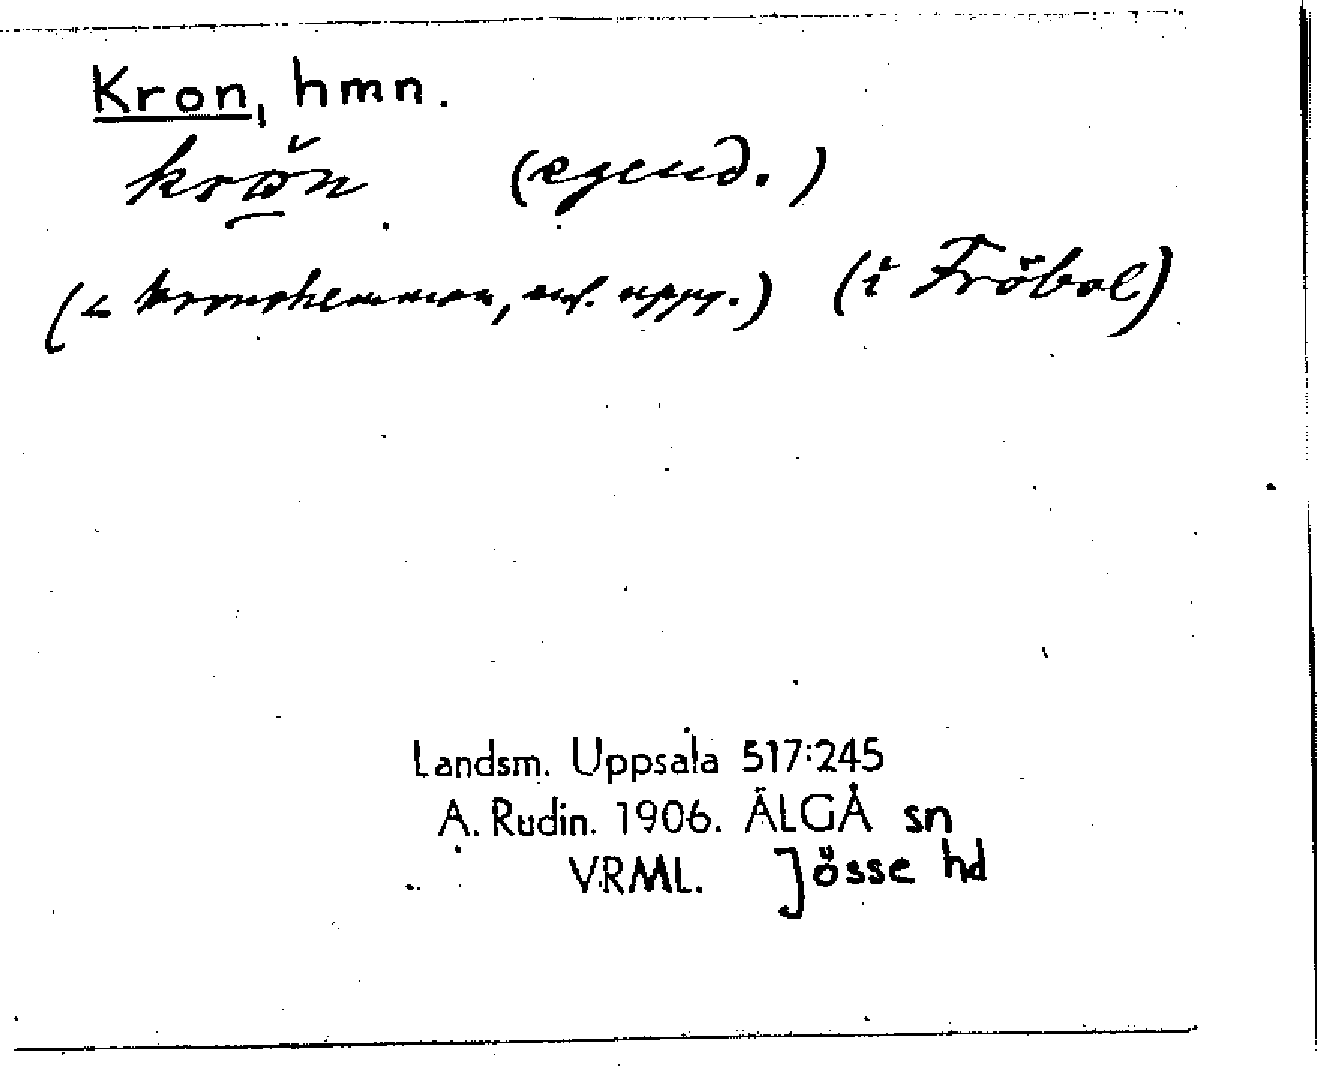 Kron, hmn.
krøn (egend.)
(< kronohemman, enl. uppg.) (i Fröbol)
Landsm. Uppsala 517:245
A. Rudin. 1906. ÄLGÅ sn
VRML. Jösse hd